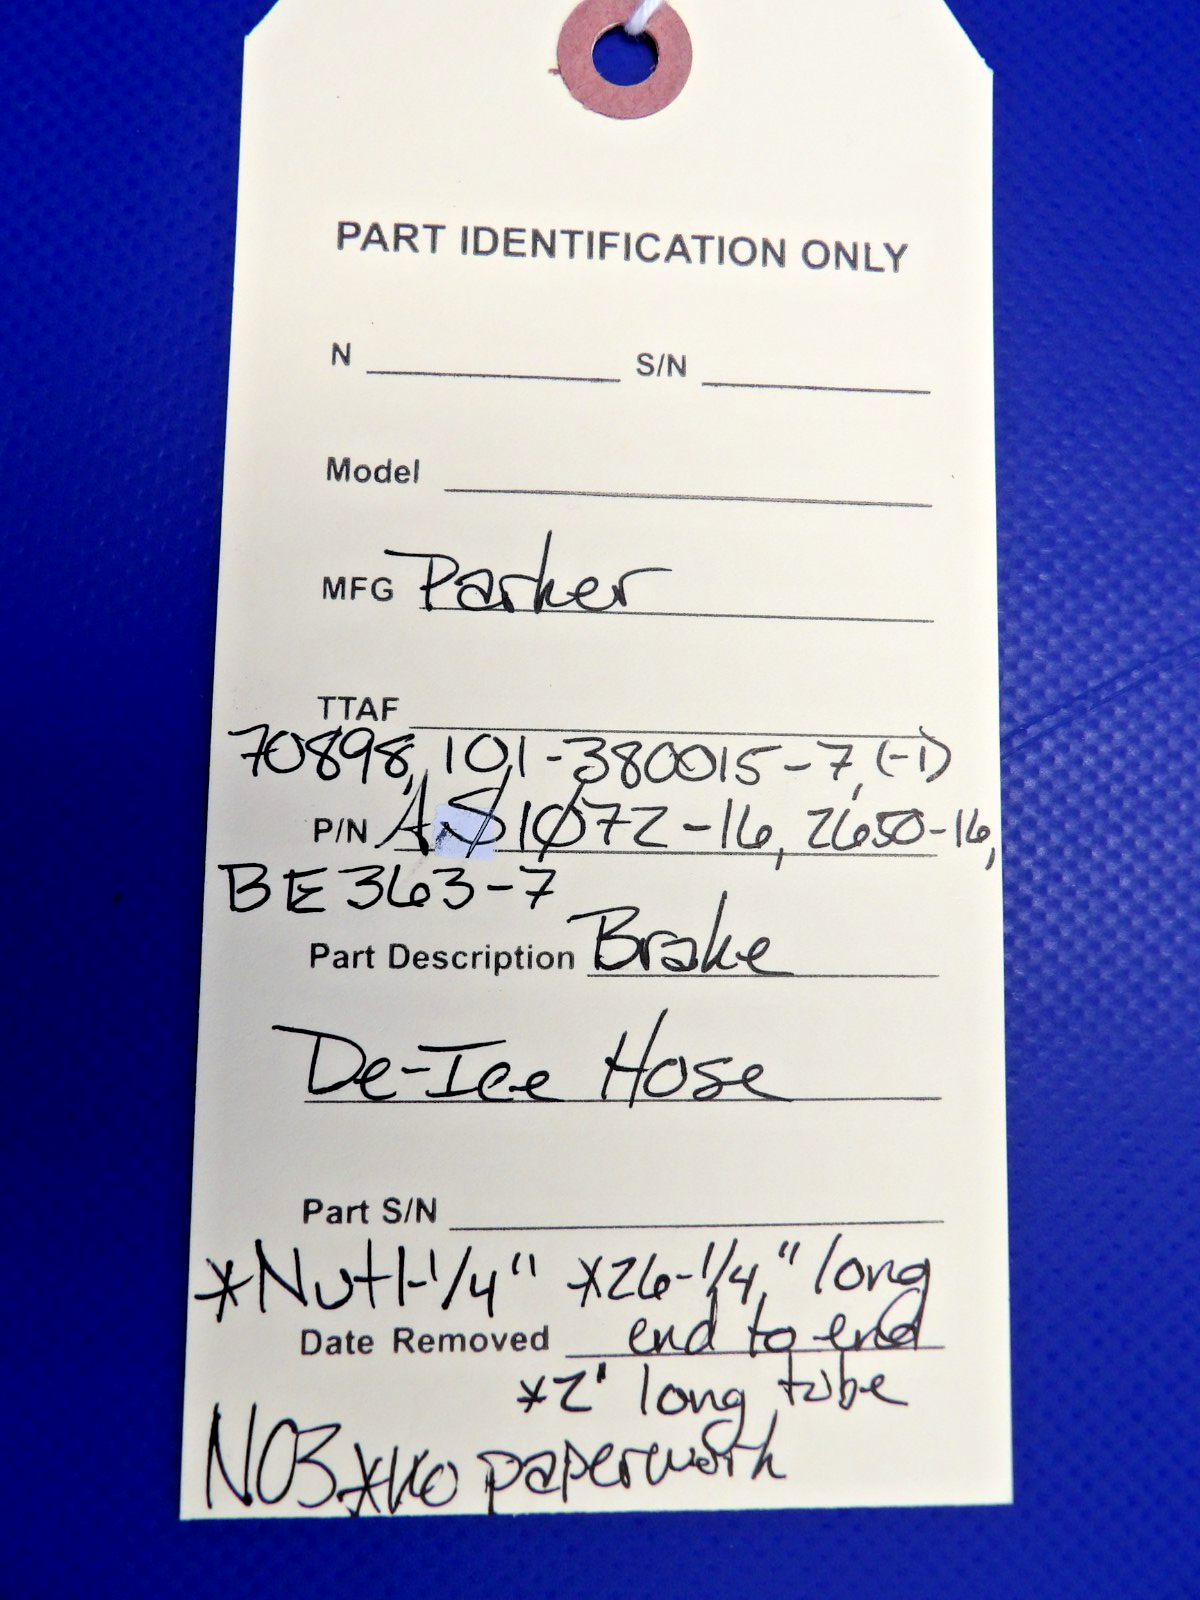 PART IDENTIFICATION ONLY
N S/N
Model
MFG Parker
TTAF
70898, 101-380015-7, (-1)
P/N AS1072-16, 2650-16,
BE363-7
Part Description Brake
De-Ice Hose
Part S/N
*Nut 1-1/4" *26-1/4" long
Date Removed end to end
*2' long tube
NO3 *No paperwork